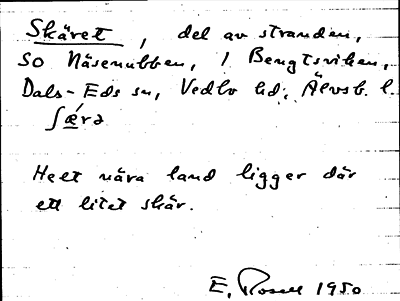 Skäret, del av stranden,
SO Näsenubben, i Bengtsviken,
Dals-Eds sn, Vedbo hd, Älvsb. l.
ʃæ̀rə
Helt nära land ligger där
ett litet skär.
E. Rosell 1950